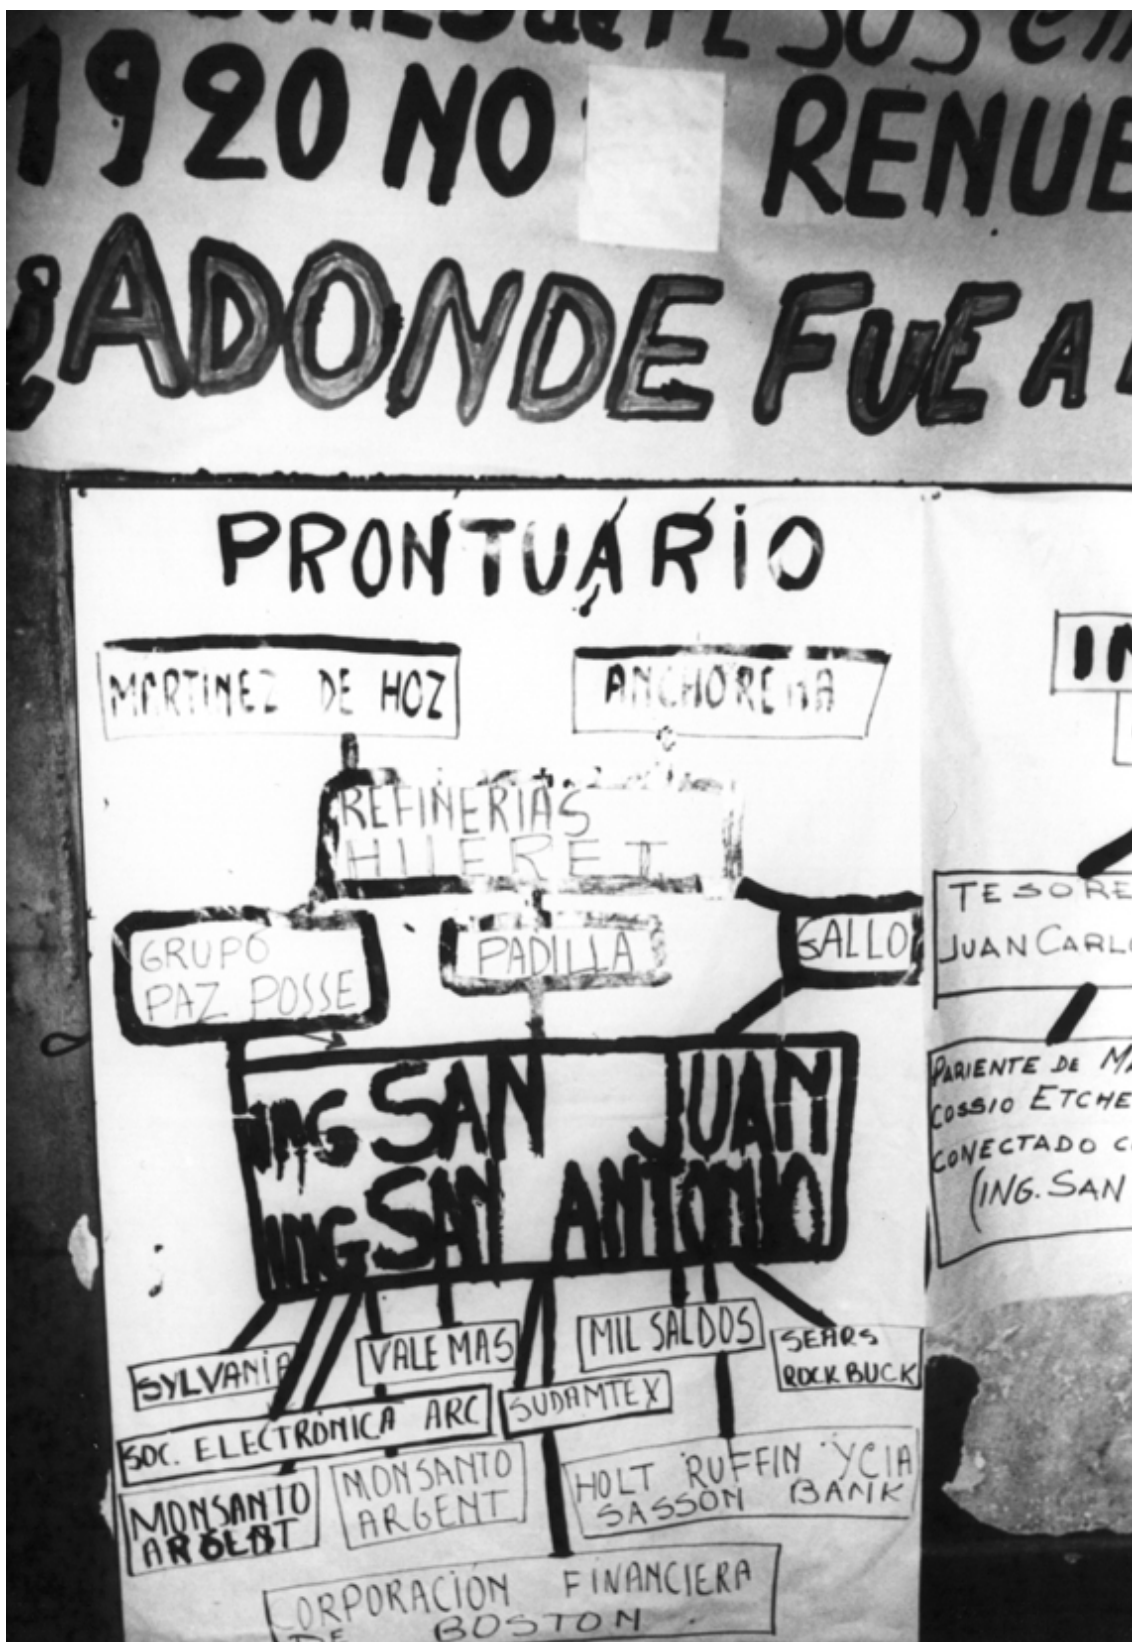 SOS
1920 NO RENUE
¿ADONDE FUE A
PRONTUARIO
MARTINEZ DE HOZ
ANCHORENA
REFINERIAS
HILERET
GRUPO
PAZ POSSE
PADILLA
GALLO
ING SAN JUAN
ING SAN ANTONIO
SYLVANIA
VALE MAS
MIL SALDOS
SEARS
ROCK BUCK
SOC. ELECTRÓNICA ARC
SUDAMTEX
MONSANTO
ARGENT
MONSANTO
ARGENT
HOLT RUFFIN Y CIA
SASSON BANK
CORPORACIÓN FINANCIERA
DE BOSTON
IN
TESORE
JUAN CARLO
PARIENTE DE MA
COSSIO ETCHE
CONECTADO C
(ING. SAN